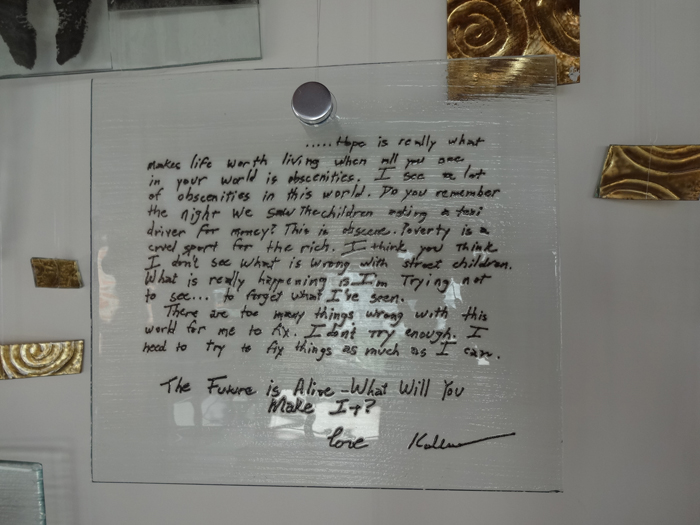 .....Hope is really what
makes life worth living when all you see
in your world is obscenities. I see a lot
of obscenities in this world. Do you remember
the night we saw the children asking a taxi
driver for money? This is obscene. Poverty is a
cruel sport for the rich. I think you think
I don't see what is wrong with street children.
What is really happening is I'm Trying not
to see... to forget what I've seen.
There are too many things wrong with this
world for me to fix. I don't try enough. I
need to try to fix things as much as I can.
The Future is Alive - What Will You
Make It?
love